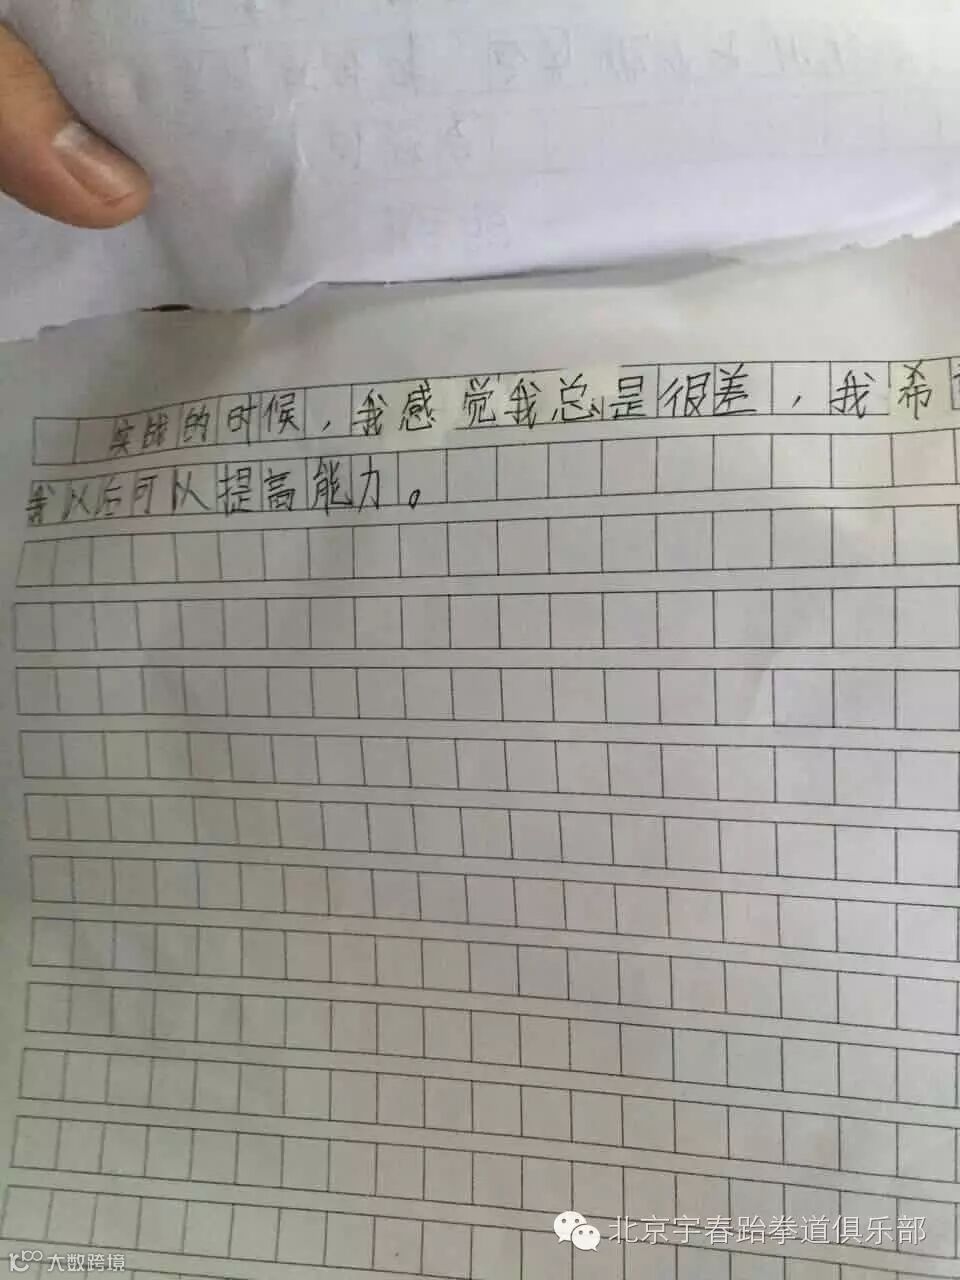 实战的时候，我感觉我总是很差，我希
我以后可以提高能力。
北京宇春跆拳道俱乐部
大数跨境